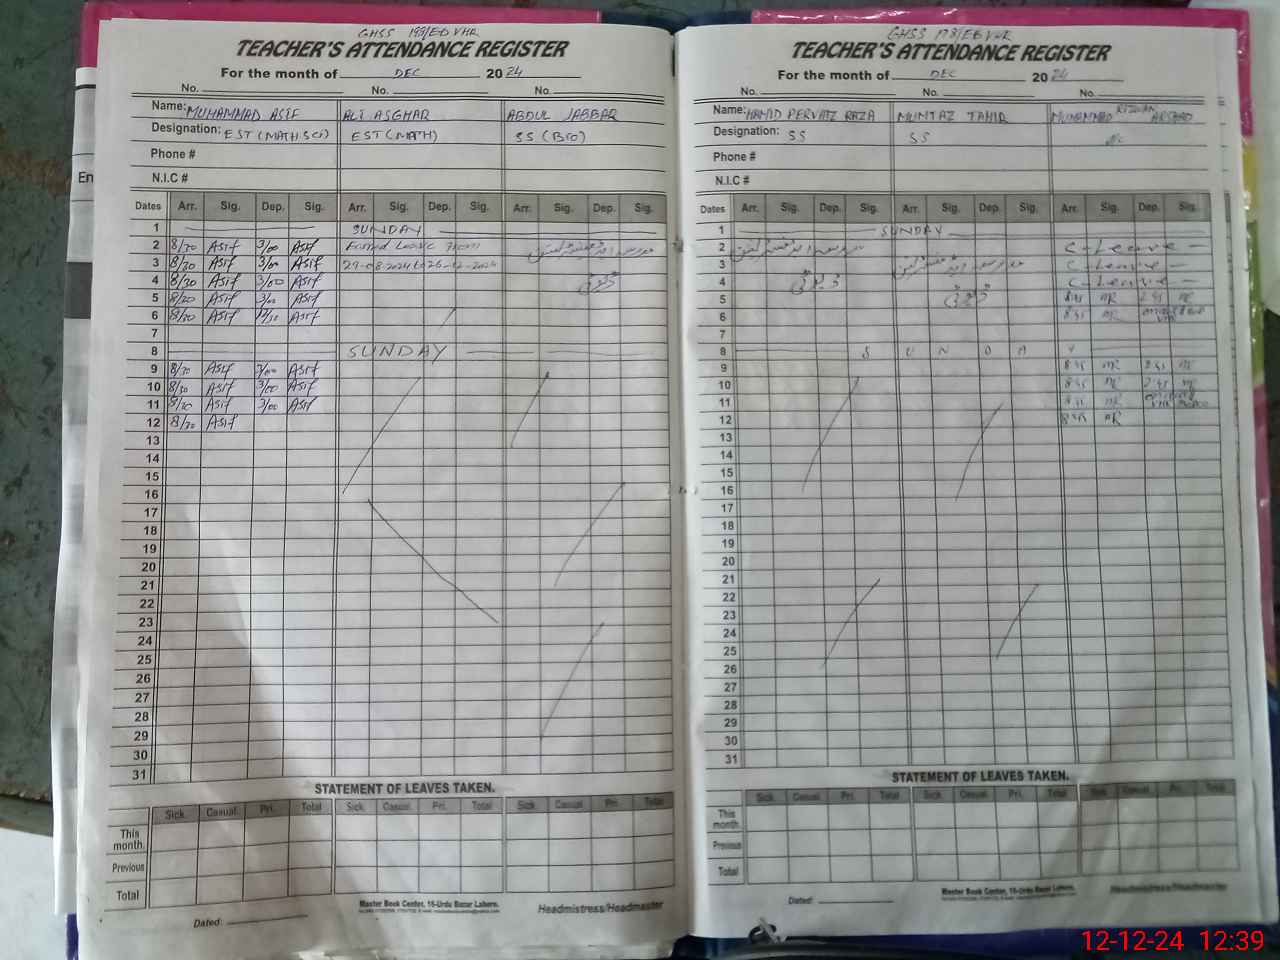 GHSS 198/EB VHR
TEACHER'S ATTENDANCE REGISTER
For the month of DEC 2024
No. No. No.
Name: MUHAMMAD ASIF ALI ASGHAR ABDUL JABBAR
Designation: EST (MATH,SCI) EST (MATH) SS (BIO)
Phone #
N.I.C #
Dates Arr. Sig. Dep. Sig. Arr. Sig. Dep. Sig. Arr. Sig. Dep. Sig.
1 SUNDAY
2 8/30 Asif 3/00 Asif Earned Leave From
3 8/30 Asif 3/00 Asif 29-08-2024 to 26-12-2024
4 8/30 Asif 3/00 Asif ڈیوٹی
5 8/30 Asif 3/00 Asif
6 8/30 Asif 12/30 Asif
7
8 SUNDAY
9 8/30 Asif 3/00 Asif
10 8/30 Asif 3/00 Asif
11 8/30 Asif 3/00 Asif
12 8/30 Asif
13
14
15
16
17
18
19
20
21
22
23
24
25
26
27
28
29
30
31
STATEMENT OF LEAVES TAKEN.
Sick. Casual. Pri. Total Sick. Casual. Pri. Total Sick. Casual. Pri. Total
This month.
Previous
Total
Master Book Center, 16-Urdu Bazar Lahore.
Dated: Headmistress/Headmaster
GHSS 178/EB VHR
TEACHER'S ATTENDANCE REGISTER
For the month of DEC 2024
No. No. No.
Name: HAMID PERVAIZ RAZA MUMTAZ TAHIR MUHAMMAD RIZWAN ARSHAD
Designation: SS SS
Phone #
N.I.C #
Dates Arr. Sig. Dep. Sig. Arr. Sig. Dep. Sig. Arr. Sig. Dep. Sig.
1 SUNDAY
2 C-Leave
3 C-Leave
4 ڈیوٹی C-Leave
5 ڈیوٹی 8:45 MR 2:45 MR
6 8:45 MR
7
8 SUNDAY
9 8:45 MR 2:45 MR
10 8:45 MR 2:45 MR
11 8:45 MR
12 8:45 MR
13
14
15
16
17
18
19
20
21
22
23
24
25
26
27
28
29
30
31
STATEMENT OF LEAVES TAKEN.
Sick. Casual. Pri. Total Sick. Casual. Pri. Total Sick. Casual. Pri. Total
This month.
Previous
Total
Master Book Center, 16-Urdu Bazar Lahore.
Dated: Headmistress/Headmaster
En
12-12-24 12:39